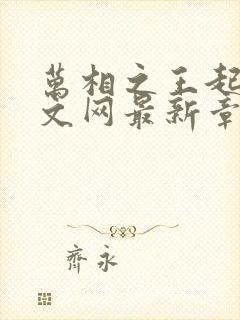 萬相之王起
文网最新章
齊永